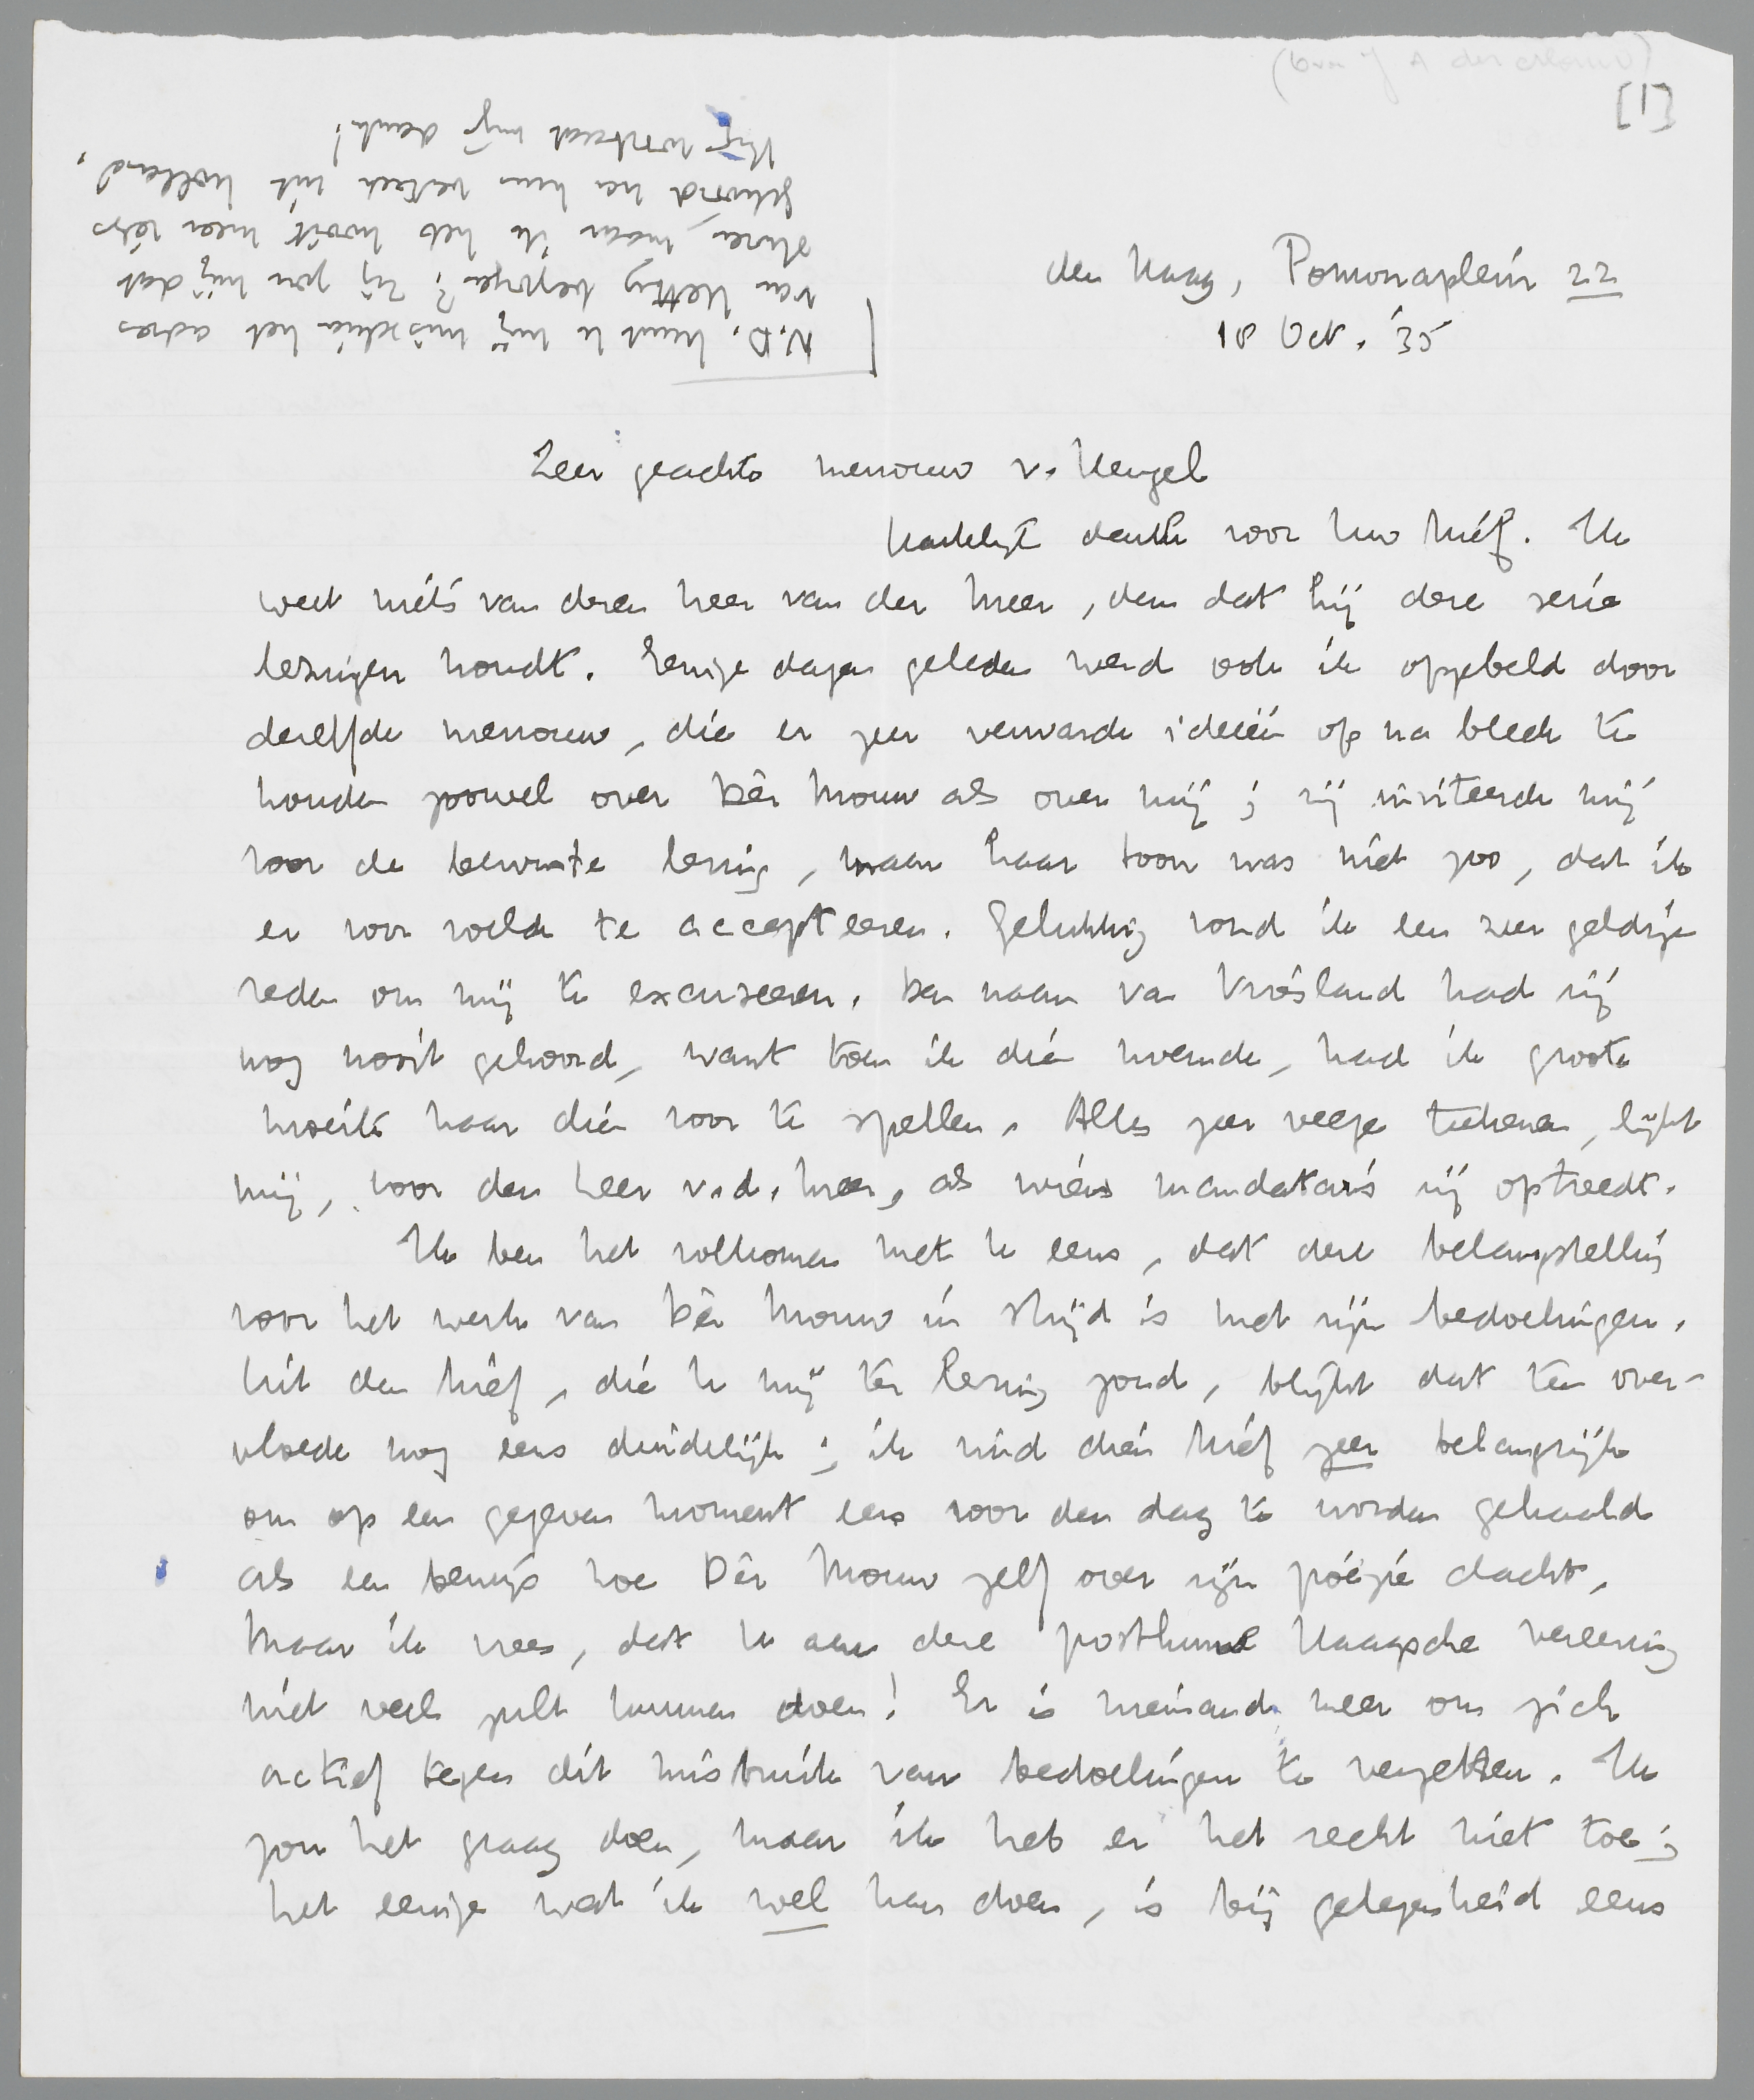 [1]
den Haag, Pomonaplein 22
18 Oct. '35
Zeer geachte mevrouw v. Hengel
Hartelijk dank voor Uw brief. Ik
weet niets van dezen heer van der Meer, dan dat hij deze serie
lezingen houdt. Eenige dagen geleden werd ook ik opgebeld door
dezelfde mevrouw, die er zeer verwarde ideeën op na bleek te
houden zoowel over Dèr Mouw als over mij; zij inviteerde mij
voor de bewuste lezing, maar haar toon was niet zoo, dat ik
er voor voelde te accepteeren. Gelukkig vond ik een zeer geldige
reden om mij te excuseeren. Den naam van Vriesland had zij
nog nooit gehoord, want toen ik dien noemde, had ik groote
moeite haar dien voor te spellen. Alles zeer veege teekenen, lijkt
mij, voor den heer v.d. Meer, als wiens mandataris zij optreedt.
Ik ben het volkomen met U eens, dat deze belangstelling
voor het werk van Dèr Mouw in strijd is met zijn bedoelingen.
Uit den brief, die U mij ter lezing zond, blijkt dat ten over-
vloede nog eens duidelijk; ik vind dien brief zeer belangrijk
om op een gegeven moment eens voor den dag te worden gehaald
als een bewijs hoe Dèr Mouw zelf over zijn poëzie dacht,
Maar ik vrees, dat U aan deze posthume Haagsche vereering
niet veel zult kunnen doen! Er is niemand meer om zich
actief tegen dit misbruik van bedoelingen te verzetten. Ik
zou het graag doen, maar ik heb er het recht niet toe;
het eenige wat ik wel kan doen, is bij gelegenheid eens
N.B. Kunt U mij misschien het adres
van Hetty bezorgen? Zij zou mij dat
sturen, maar ik heb nooit meer iets
gehoord na hun vertrek uit Holland,
Bij voorbaat mijn dank!